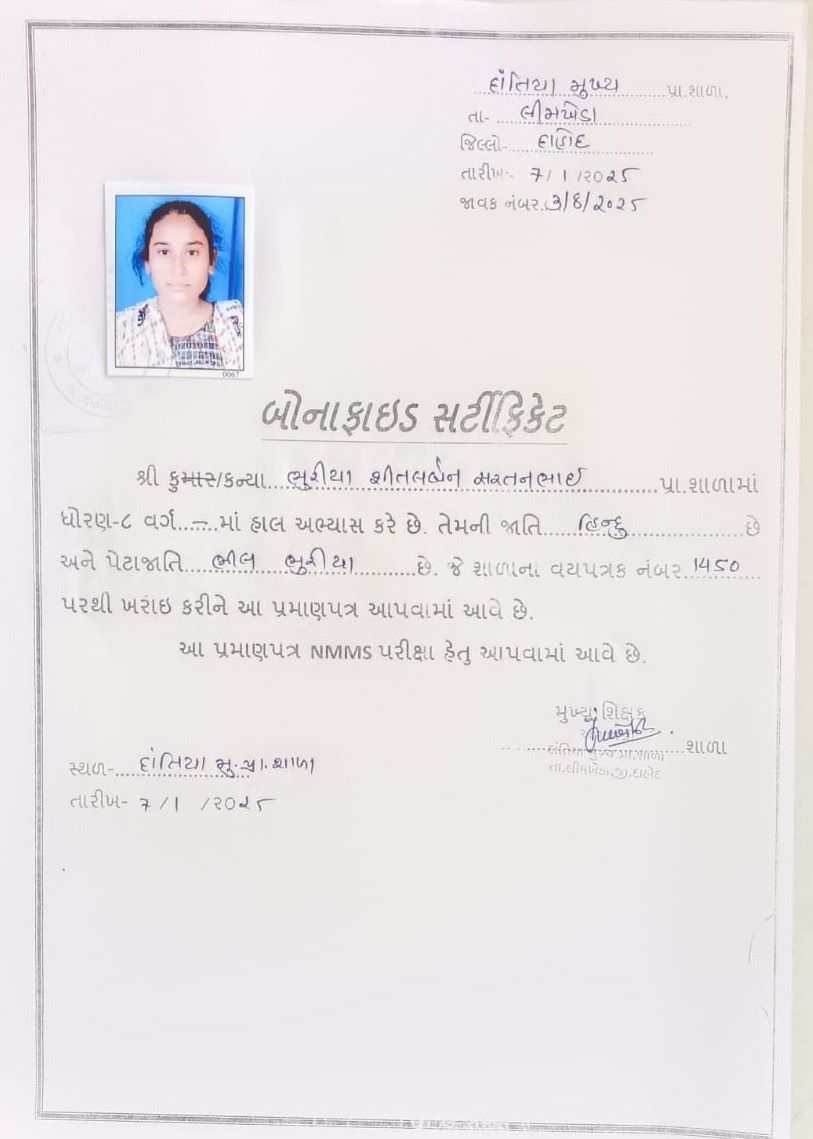 દાંતિયા મુખ્ય પ્રા.શાળા,
તા- લીમખેડા
જિલ્લો- દાહોદ
તારીખ:- 7/1/૨૦૨૫
જાવક નંબર.૩/8/૨૦૨૫
0067
બોનાફાઇડ સર્ટીફિકેટ
શ્રી કુમાર/કન્યા ભુરીયા શીતલબેન સરતનભાઈ પ્રા.શાળામાં
ધોરણ-૮ વર્ગ...–...માં હાલ અભ્યાસ કરે છે. તેમની જાતિ હિન્દુ છે
અને પેટાજાતિ ભીલ ભુરીયા છે. જે શાળાના વયપત્રક નંબર 1450
પરથી ખરાઇ કરીને આ પ્રમાણપત્ર આપવામાં આવે છે.
આ પ્રમાણપત્ર NMMS પરીક્ષા હેતુ આપવામાં આવે છે.
મુખ્ય શિક્ષક
દાંતિયા મુખ્ય પ્રા.શાળા શાળા
તા.લીમખેડા,જી.દાહોદ
સ્થળ- દાંતિયા મુ.પ્રા.શાળા
તારીખ- 7/1/૨૦૨૫